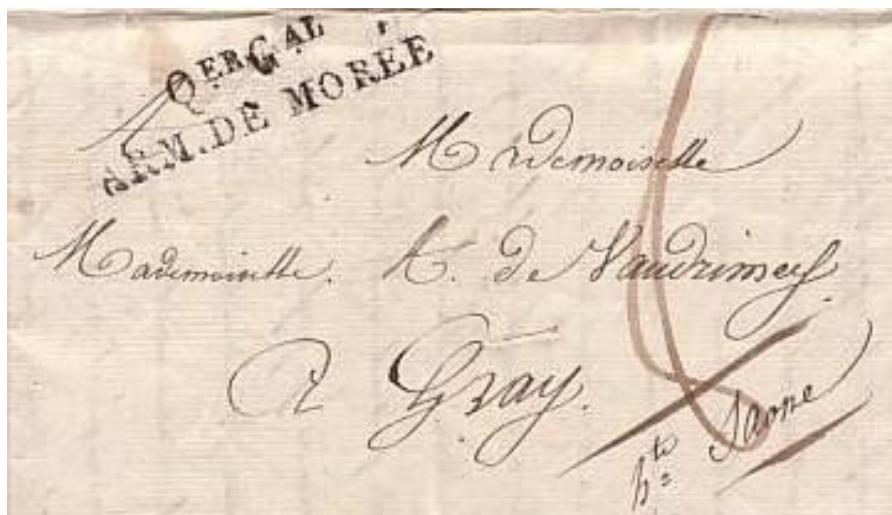 QER GAL
ARM. DE MORÉE
Mademoiselle
Mademoiselle. A. de Vaudrimey.
A Gray.
hte Saone